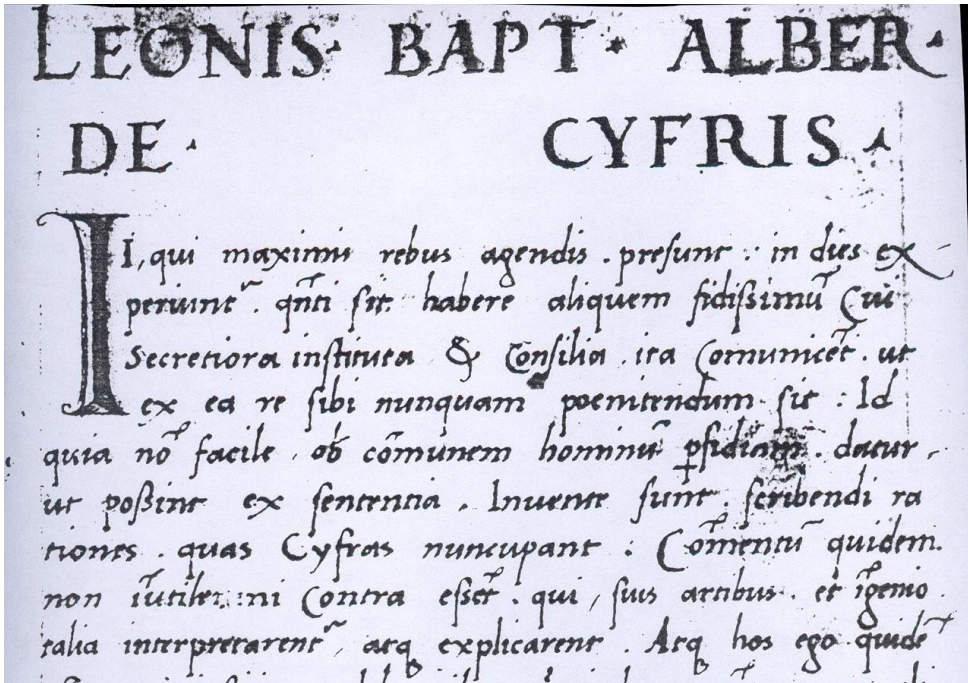 LEONIS · BAPT · ALBER ·
DE · CYFRIS ·
II, qui maximis rebus agendis . presunt : in dies ex
periunt᷑ . qñti sit habere aliquem fidissimũ Cui
Secretiora instituta & Consilia ita Comunicẽt . ut
ex ea re sibi nunquam poenitendum sit : Id
quia nõ facile ob cõmunem hominũ ꝑfidiam . datur ,
ut poßint ex sententia . Invente sunt . scribendi ra
tiones . quas Cyfras nuncupant : Cõmentũ quidem
non iũtile: ni Contra essẽt . qui , suis artibus . et ĩgenio
talia interpretarent᷑ , atq explicarent . Atq hos ego quidẽ